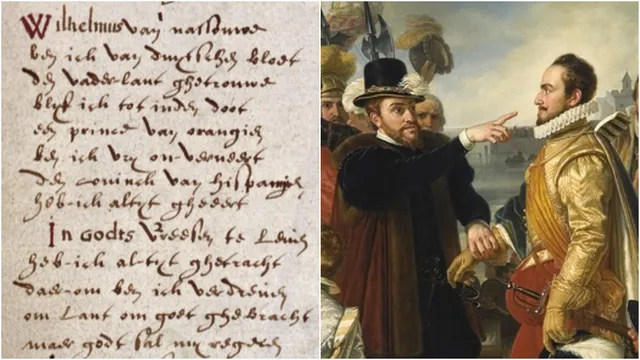 Wilhelmus van nassouwe
ben ich van duytschen bloet
den vaderlant ghetrouwe
blyf ich tot inden doot
een prince van orangien
ben ich vry on-verveert
den coninck van hispangien
heb-ich altyt gheeert
In Godts vreesen te Leven
heb-ich altyt ghetracht
daer-om ben ich verdreven
om Lant om goet ghebracht
maer godt sal my regeren